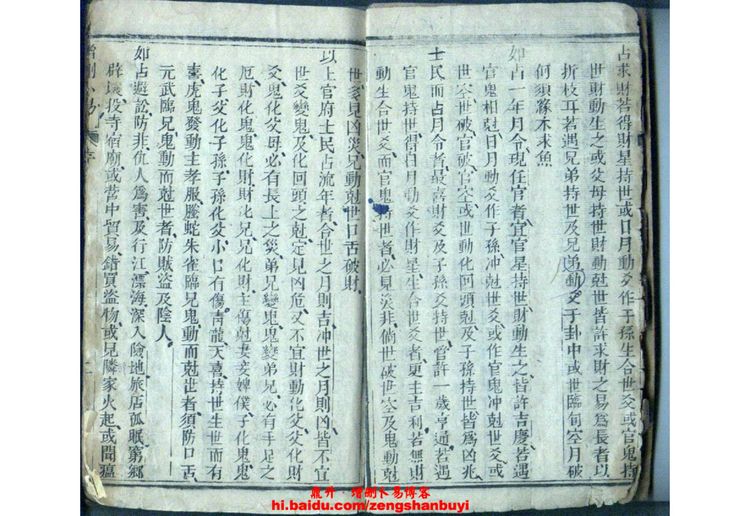 占求財若得財星持世或日月動爻作子孫生合世爻或官鬼持
世財動生之或父母持世財動尅世皆許求財之易為長者以
折枝耳若遇兄弟持世及兄弟動爻于卦中或世臨旬空月破
何須緣木求魚
如占一年月令現任官者宜官星持世財動生之皆許吉慶若遇
官鬼相尅日月動爻作子孫冲尅世爻或作官鬼冲尅世爻或
世空世破官破官空或世動化回頭尅及子孫持世皆為凶兆
士民而占月令者最喜財爻及子孫爻持世管許一歲亨通若遇
官鬼持世得日月動爻作財星生合世爻者更主吉利若無財
動生合世爻而官鬼持世者必見災非倘世破世空及鬼動尅
世多見凶災兄動尅世口舌破財
以上官府士民占流年者合世之月則吉冲世之月則凶皆不宜
世爻變鬼及化回頭之尅定見凶危又不宜財動化父父化財
爻鬼化父母必有長上之災弟兄變鬼鬼變弟兄必有手足之
厄財化鬼鬼化財財化兄兄化財主傷尅妻妾婢僕子化鬼鬼
化子父化子孫子孫化父小口有傷青龍天喜持世生世而有
喜虎鬼發動主孝服螣蛇朱雀臨兄鬼動而尅世者須防口舌
元武臨兄鬼動而尅世者防賊盜及陰人
如占避訟防非仇人為害及行江漂海深入險地旅店孤眠窮鄉
僻壤投寺宿廟或營中貿易錯買盜物或見隣家火起或聞瘟
增刪卜易
序
龍升·增刪卜易博客
hi.baidu.com/zengshanbuyi